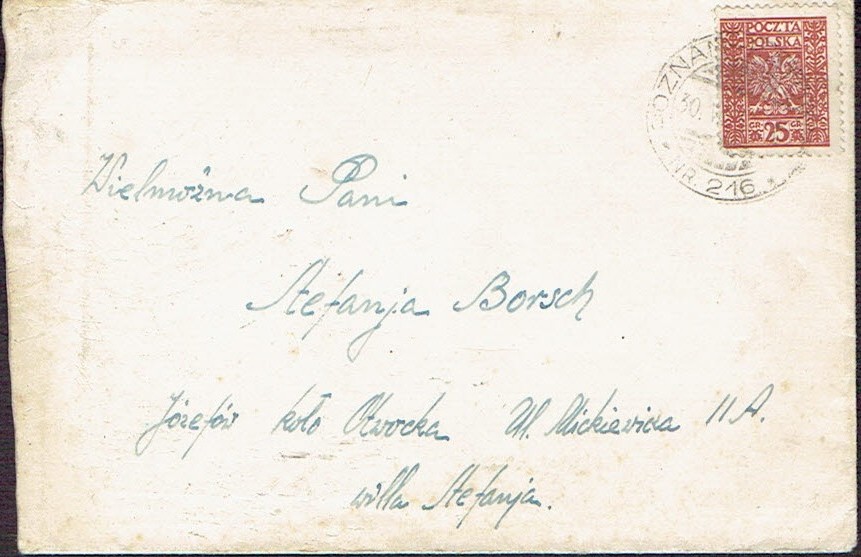 POCZTA
POLSKA
GR 25 GR
POZNAŃ
30.
NR. 216
Wielmożna Pani
Stefanja Borsch
Józefów koło Otwocka Ul. Mickiewicza 11 A.
willa Stefanja.